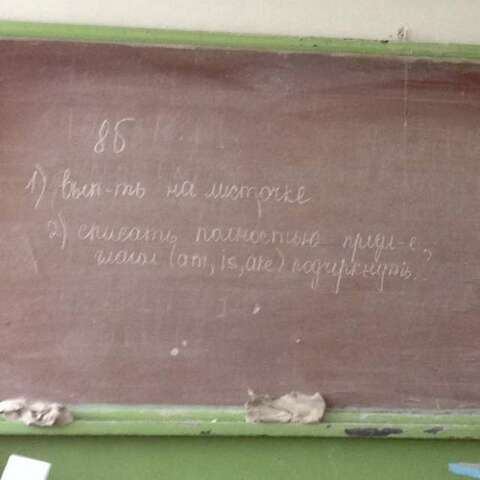 8б
1) вып-ть на листочке
2) списать полностью предл-е,
глагол (am, is, are) подчеркнуть.